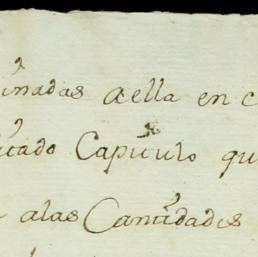 inadas aella en c
itado Capitulo qu
alas Cantidades